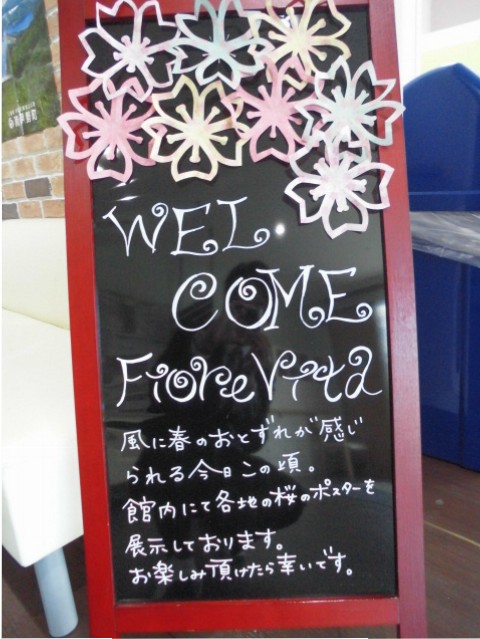 WEL
COME
Fiore Vita
風に春のおとずれが感じ
られる今日この頃。
館内にて各地の桜のポスターを
展示しております。
お楽しみ頂けたら幸いです。